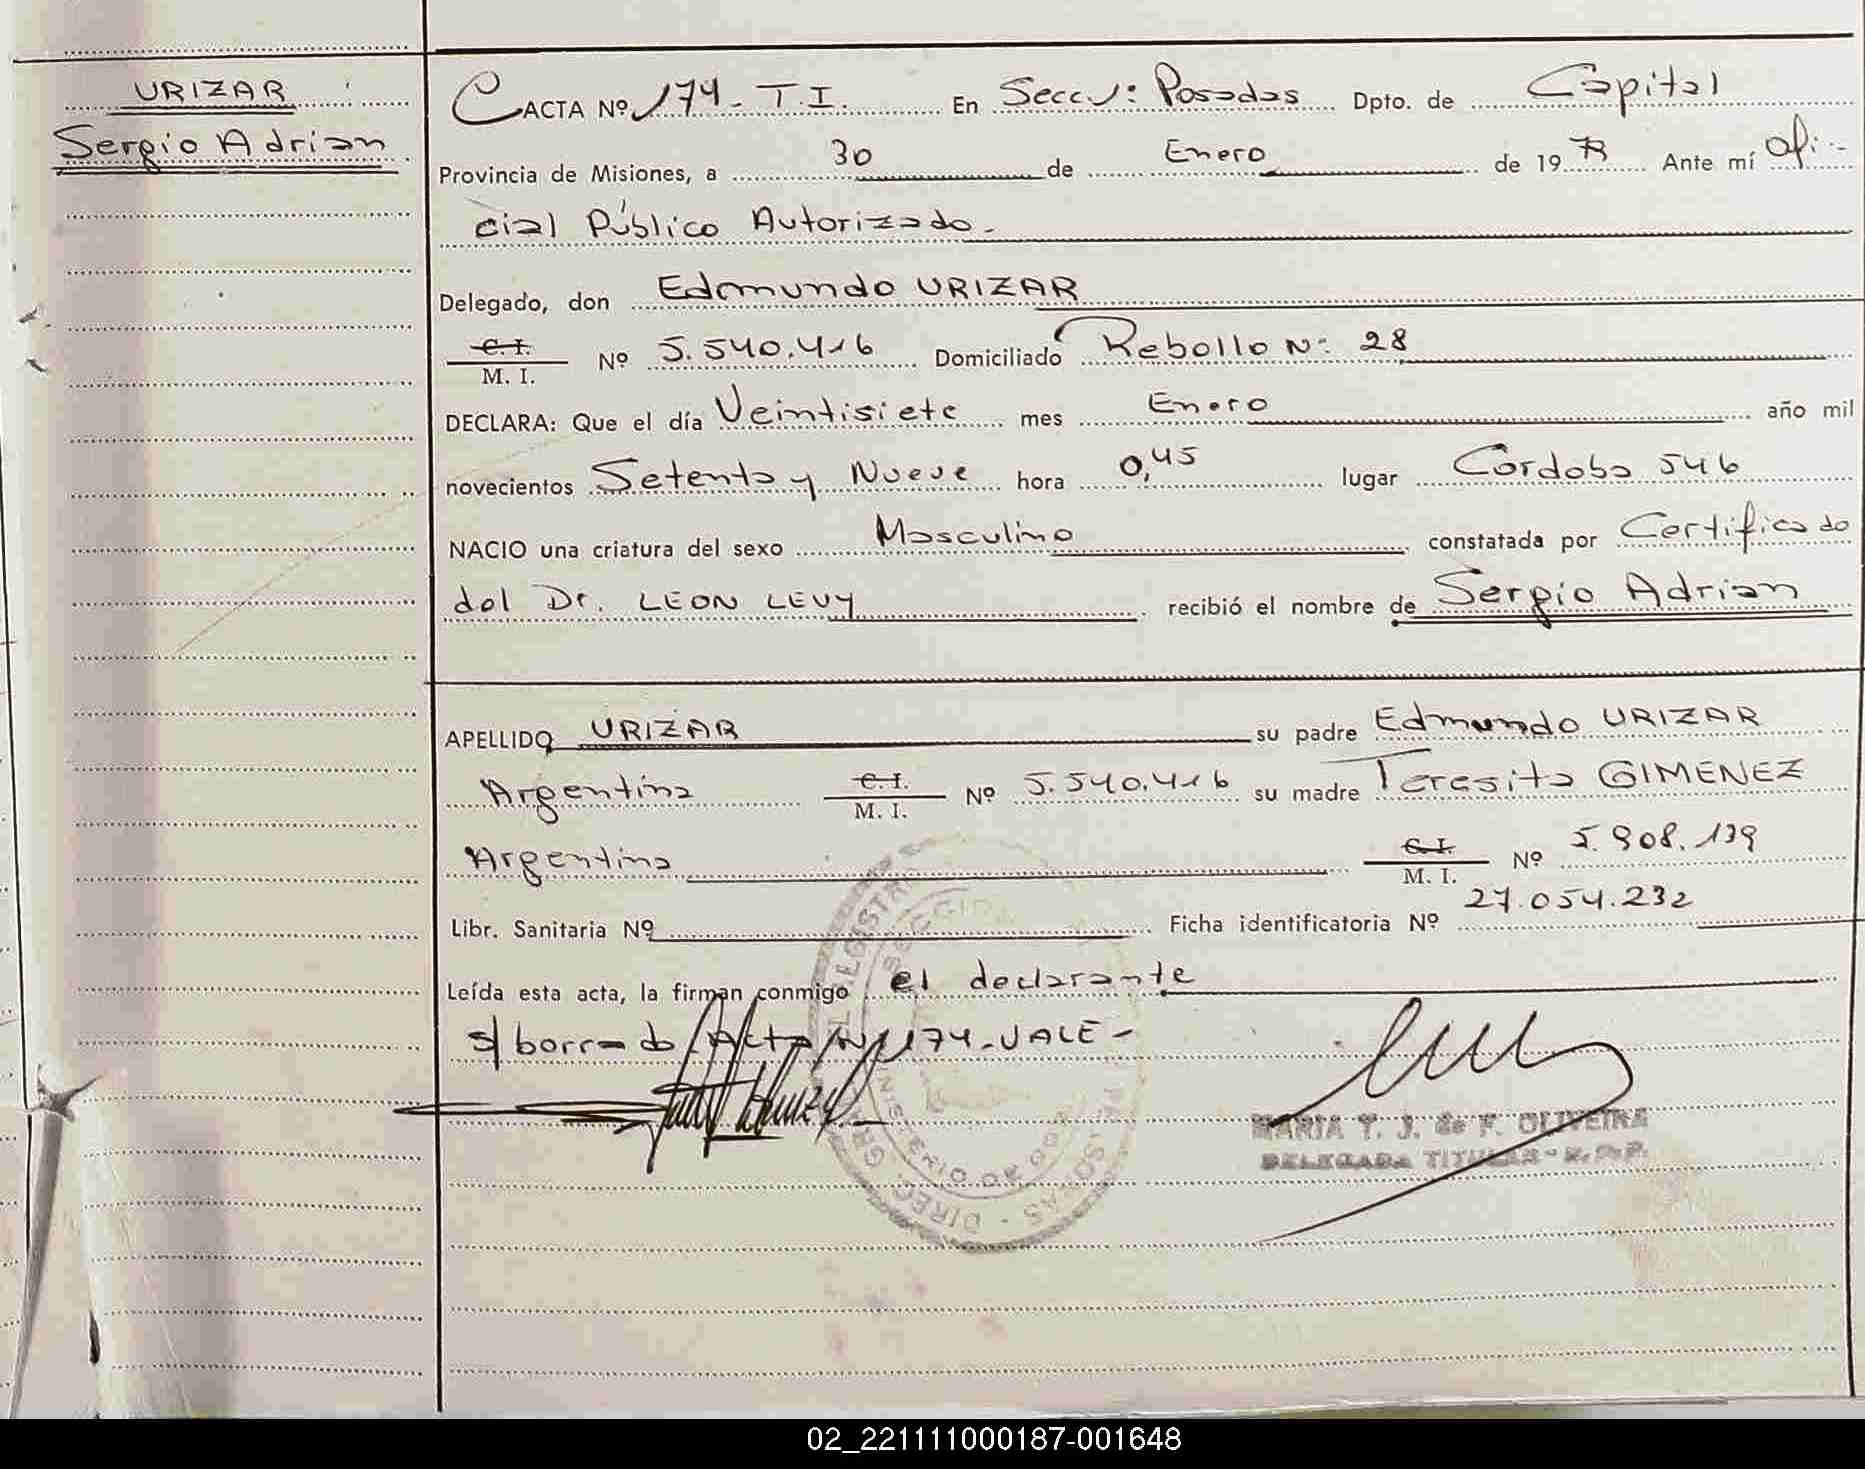 URIZAR
Sergio Adrian
ACTA Nº 174 - T.I. En Secc: Posadas Dpto. de Capital
Provincia de Misiones, a 30 de Enero de 19 79 Ante mí ofi-
cial Público Autorizado.
Delegado, don Edmundo URIZAR
C. I.
M. I. Nº 5.540.416 Domiciliado Rebollo N: 28
DECLARA: Que el día Veintisiete mes Enero año mil
novecientos Setenta y Nueve hora 0,45 lugar Cordoba 546
NACIO una criatura del sexo Masculino constatada por Certificado
del Dr. LEON LEVY recibió el nombre de Sergio Adrian
APELLIDO URIZAR su padre Edmundo URIZAR
Argentina C. I.
M. I. Nº 5.540.416 su madre Teresita GIMENEZ
Argentina C. I.
M. I. Nº 5.908.139
Libr. Sanitaria Nº Ficha identificatoria Nº 27.054.232
Leída esta acta, la firman conmigo el declarante
s/ borrado Acta Nº 174 - VALE -
MARIA T. J. de F. OLIVEIRA
DELEGADA TITULAR
02_221111000187-001648